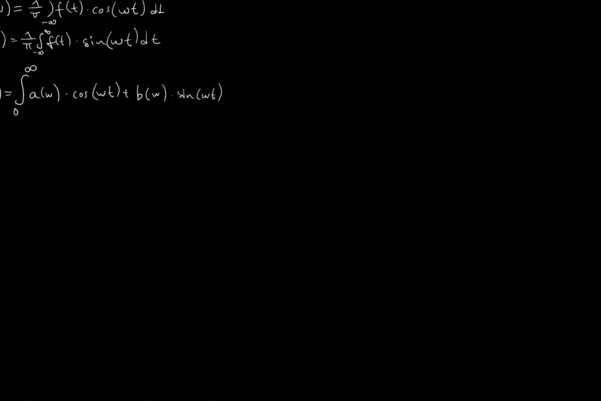 ) = 1/π ∫ f(t) · cos(wt) dt
-∞
) = 1/π ∫_{-∞}^{∞} f(t) · sin(wt) dt
) = ∫_{0}^{∞} a(w) · cos(wt) + b(w) · sin(wt)